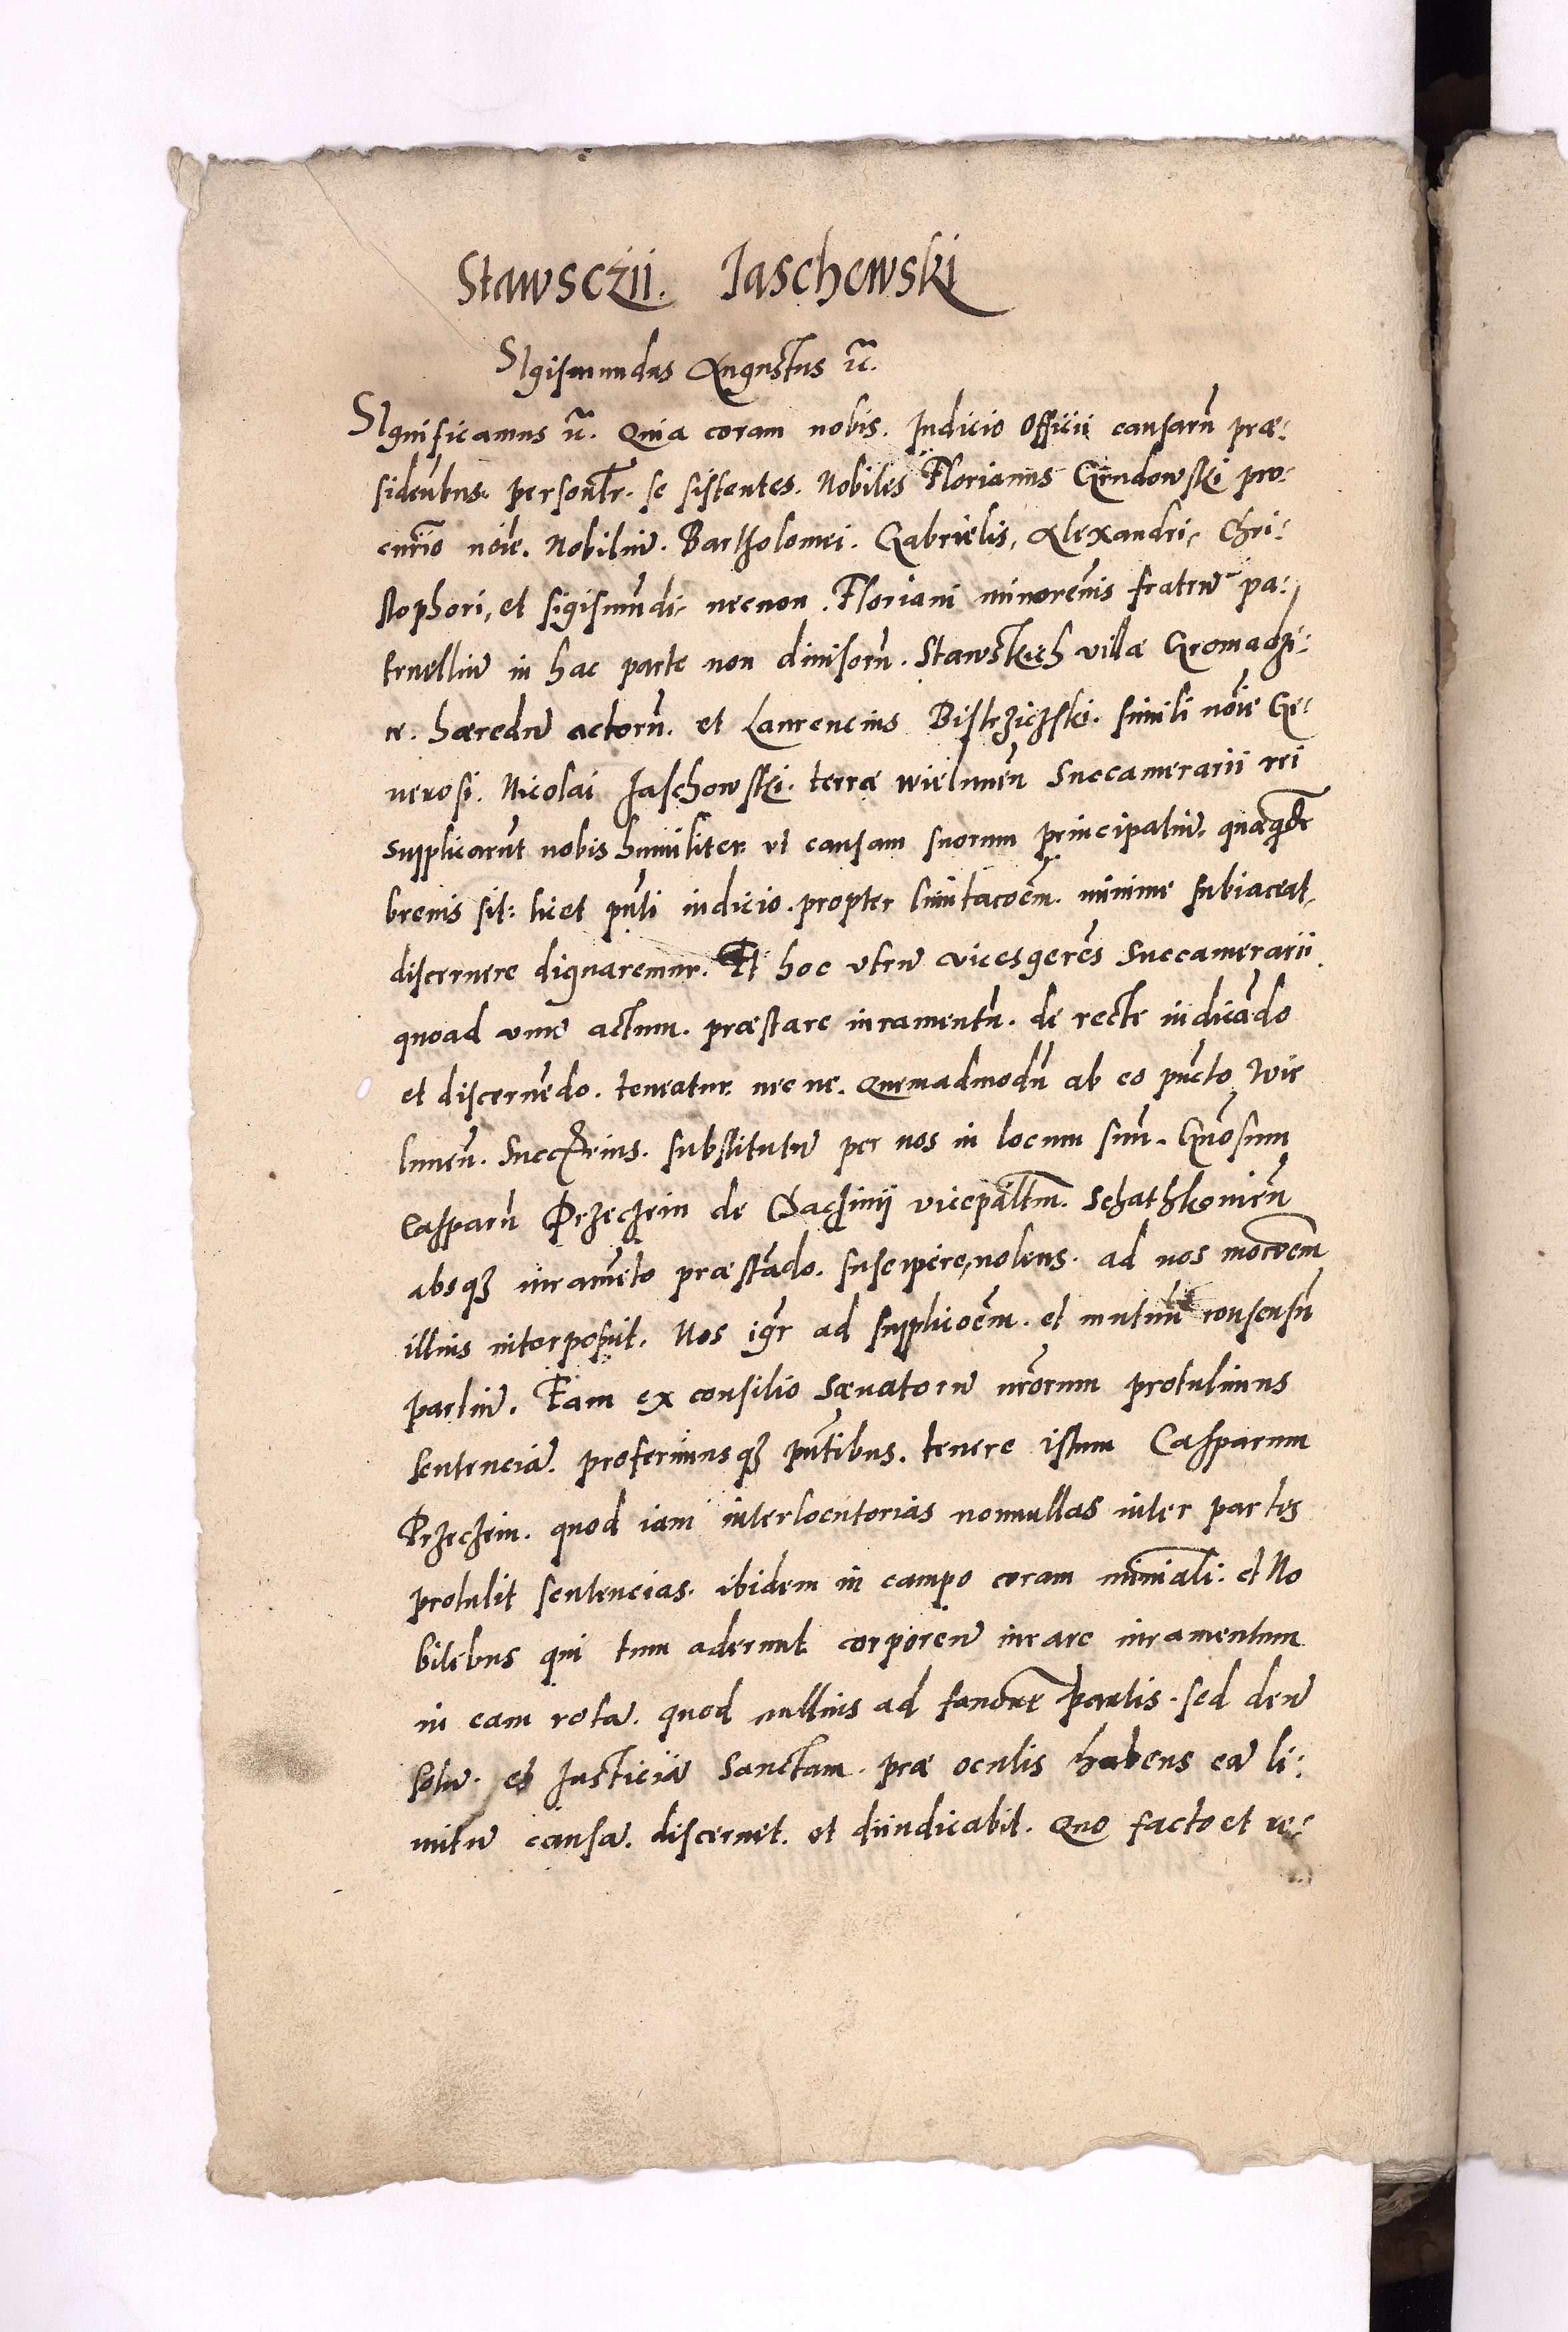 Stawsczii. Jaschowski
SIgismundus Augustus &c̃.
SIgnificamus &c̃. Quia coram nobis. Judicio officii causarũ præ:
sidentibus. personlr̃. se sistentes. Nobiles Florianus Grudowski pro:
curio noĩe. Nobiliũ. Bartholomei. Gabrielis, Alexandri, Chri:
stophori, et Sigismũdi, necnon. Floriani minorẽnis fratrũ pa:
truelliũ in hac parte non diuisorũ. Stawskich villæ Gromadzi:
ce. hæredũ actorũ. et Laurencius Bistrziczski. simili noĩe Ge:
nerosi. Nicolai Jaschowski. terræ wielunẽn Succamerarii rei
supplicarũt nobis humiliter vt causam suorum principaliũ, quæ
breuis sit: licet pñti iudicio. propter limitacoẽm. minime subiaceat,
discernere dignaremur. Et hoc vtrũ vicesgerẽs Succamerarii
quoad vnũ actum. præstare iuramentũ. de recte iudicãdo
et discernẽdo. teneatur. nec ne. Quemadmodũ ab eo pũcto wie
lunẽn. Succãrius. substitutũ per nos in locum suũ. Gñosum
Casparũ Przeczein de vicepaltm̃.
absqȝ iuramẽto præstãdo. suscipere, nolens. ad nos mocoẽm
illius interposuit. Nos igr̃ ad supplicoẽm. et mutuũ consensũ
partiũ. Eam ex consilio Sænatorũ nr̃orum protulimus
sentenciã. proferimusqȝ pñtibus. tenere istum Casparum
Przeczein. quod iam interlocutorias nonnullas inter partes
protulit sentencias. ibidem in campo coram ministiali. et No
bilibus qui tum aderunt corporeũ iurare iuramentum
in eam rotã. quod nullius ad fauorẽ partis. sed deũ
solũ. et Justiciã Sanctam. præ oculis habens eã li:
mitũ causã. discernet. et diiudicabit. Quo facto et re: